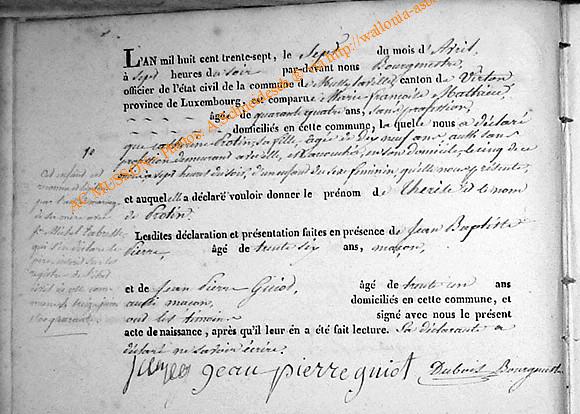 L'AN mil huit cent trente-sept, le Sept du mois d'Avril,
à Sept heures du Soir par-devant nous Bourgmestre,
officier de l'état civil de la commune de canton de Virton
province de Luxembourg, est comparue Marie françoise Mathieu,
âgée de quarante quatre ans, Sans profession,
domiciliés en cette commune, la quelle nous a déclaré
que Catherine Protin, sa fille, âgée de neuf ans, aussi sans
profession demeurant avec elle, est accouchée, en son domicile, le cinq de ce
mois, à sept heures du soir, d'un enfant du Sexe féminin, qu'elle nous présente,
et auquel elle a déclaré vouloir donner le prénom de Therèse et le nom
de Protin.
Lesdites déclaration et présentation faites en présence de Jean Baptiste
Pierre, âgé de trente six ans, maçon,
et de Jean Pierre Guiot, âgé de trente un ans
aussi maçon, domiciliés en cette commune, et
ont les témoins signé avec nous le présent
acte de naissance, après qu'il leur en a été fait lecture. La déclarante a
déclaré ne savoir écrire.
jean pierre guiot Dubois Bourgmestre
10
Cet enfant est
reconnu et
par l'acte
de sa mère avec
Michel
qui s'en déclare le
père, inscrit sur les
registres de l'état
civil de cette com-
mune le treize juin
quarante
AC MUSSON - Photos Archives de l'Etat http://wallonia-asb